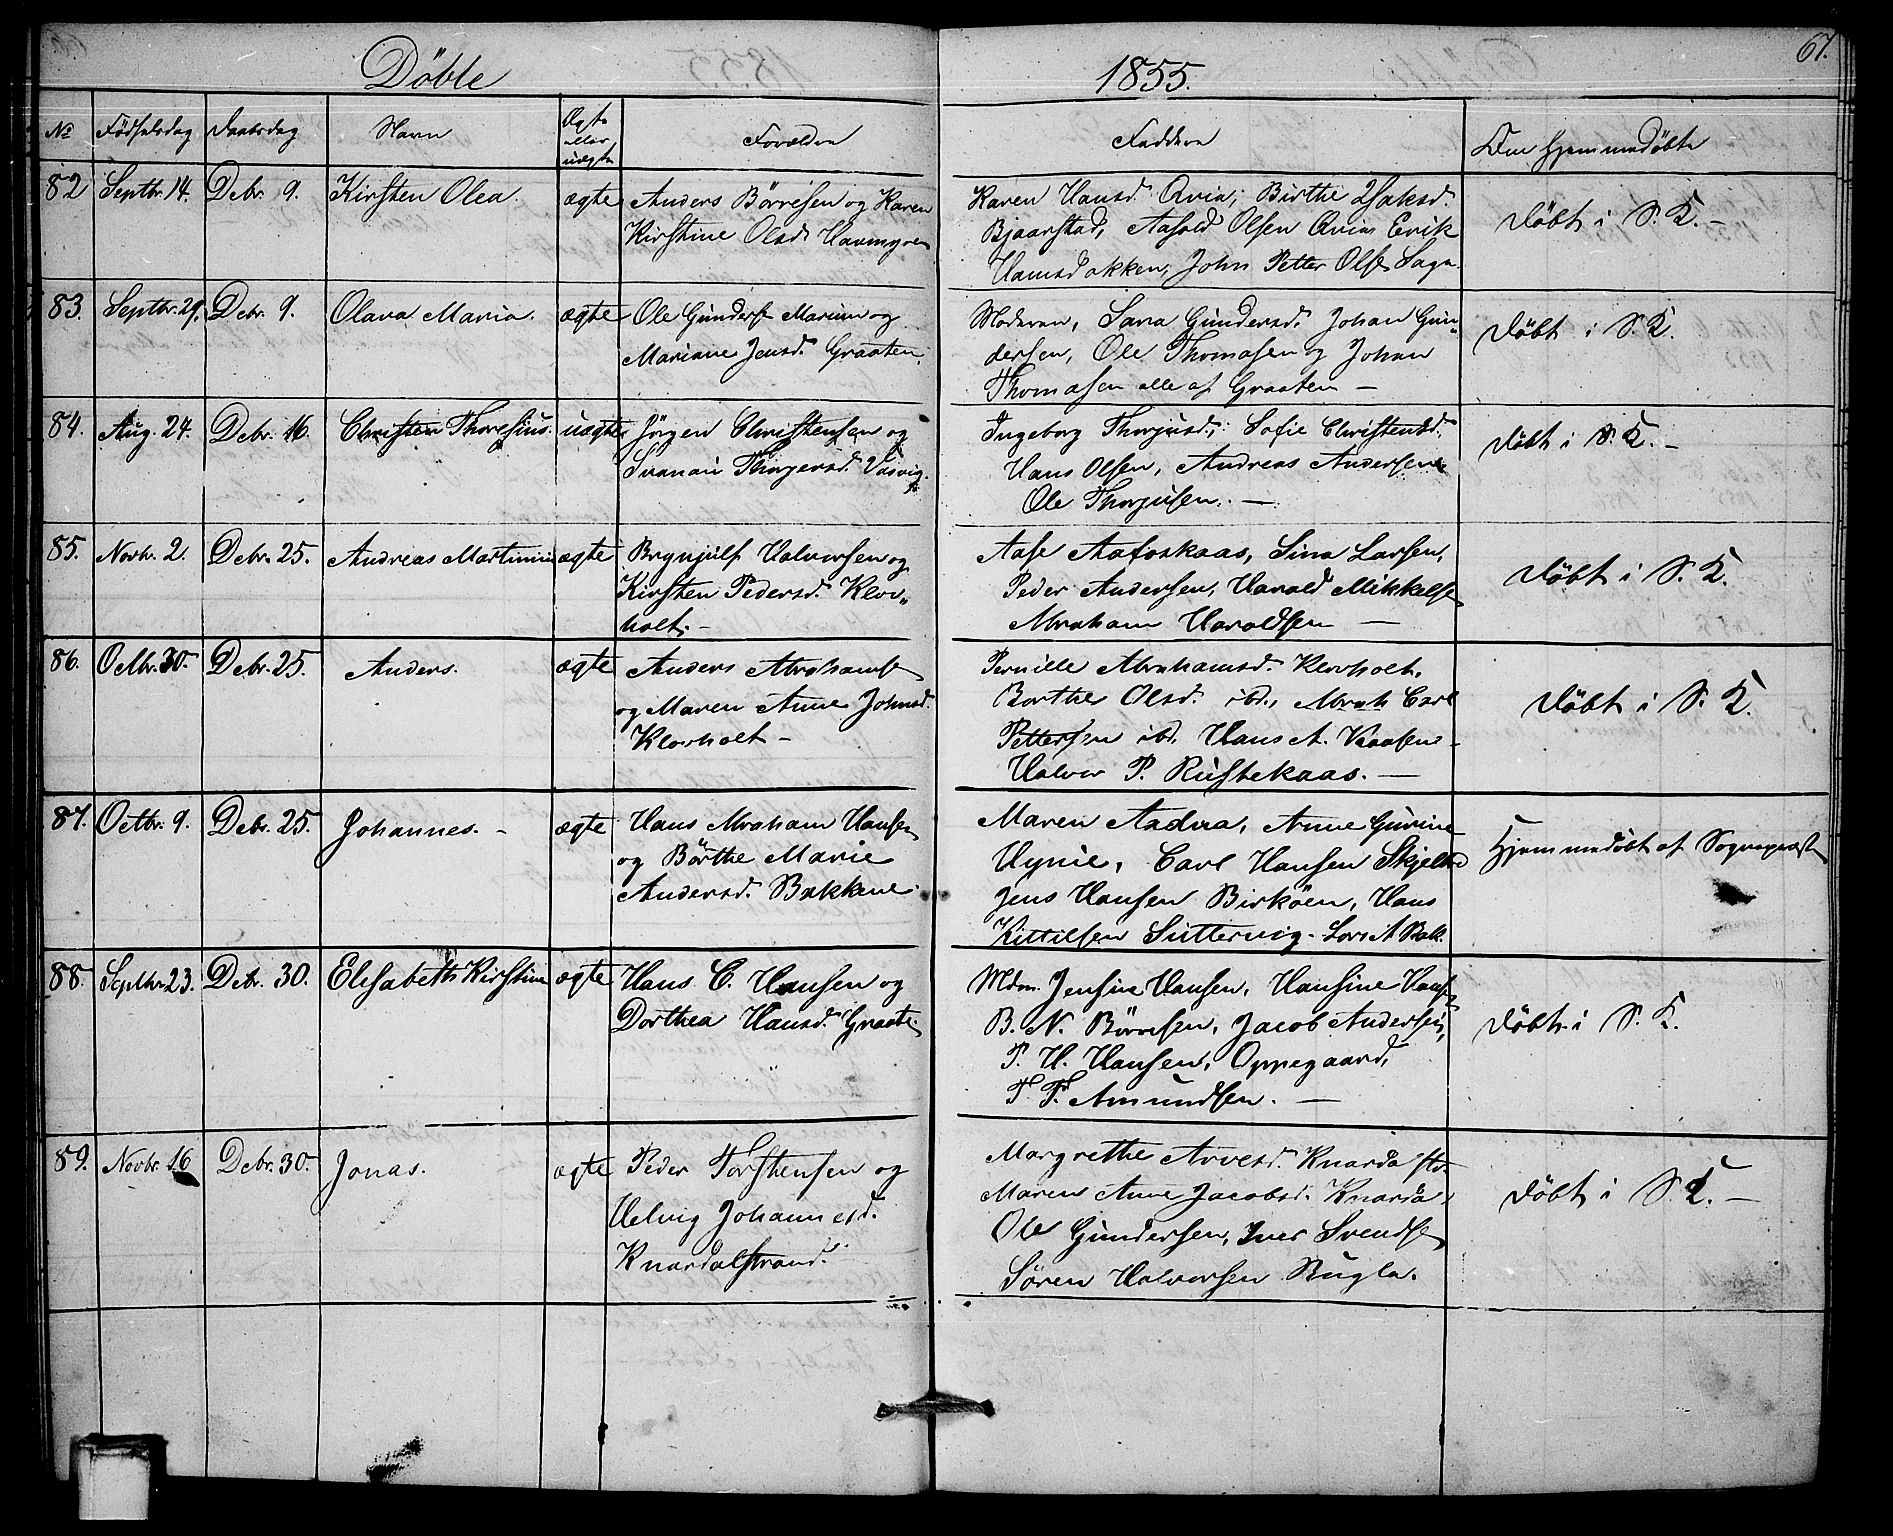 Döbte
1855.
67.
No Födselsdag Daabsdag Navn Ægte eller uægte Forældre Faddere Om Hjemmedöbt
82 Septbr. 14. Debr. 9. Kirsten Olea. ægte Anders Börresen og Karen
Kirstine Olsd. Havmyren
Karen Hansd. Qvia; Birthe Isaksd.
Bjaarstad, Aasold Olsen Qvia, Erik
John Petter Olse
Döbt i S. K. –
83. Septbr. 29. Debr. 9. Olava Maria. ægte Ole Gunders. og
Mariane Jensd. Graaten.
Moderen, Sara Gundersd. Johan Gun-
dersen, Ole Thomasen og Johan
Thomasen alle af Graaten –
Döbt i S. K.
84. Aug. 24. Debr. 16. Christen Thoresius. uægte Jörgen Christensen og
Thorgersd. Vasvig.
Ingeborg Thorjusd; Sofie Christensd.
Hans Olsen, Andreas Andersen
Ole Thorjusen. –
Döbt i S. K. –
85. Novbr. 2. Debr. 25. Andreas Martinius ægte Brynjulf Halvorsen og
Kirsten Pedersd. Klov-
holt. –
Aase Aafoskaas, Sina Larsen,
Peder Andersen, Harald Mikkelse
Abraham Haraldsen –
Döbt i S. K.
86. Octbr. 30. Debr. 25. Anders. ægte Anders Abrahams.
og Maren Anne Johnsd.
Klovholt –
Pernille Abrahamsd. Klovholt.
Borthe Olsd. ibd., Abrah Carl
Pettersen ibd. Hans A. Kaasene
Halvor P. Rustekaas. –
Döbt i S. K.
87. Octbr. 9. Debr. 25. Johannes. – ægte Hans Abraham Hansen
og Börthe Marie
Andersd. Bakkene.
Maren Aadua, Anne Gurine
Hynie, Carl Hansen Skjelbred
Jens Hansen Birköen, Hans
Kittilsen Suttervig – Lars A Bak.
Hjemmedöbt af Sognepræst
88. Septbr. 23. Debr. 30. Elisabeth Kirstine ægte Hans C. Hansen og
Dorthea Hansd. Graate.
Mdm. Jensine Hansen, Hansine Hansen
B. N. Börresen, Jacob Andersen,
P. H. Hansen, Oppegaard,
T. F. Amundsen. –
Döbt i S. K.
89. Novbr. 16 Debr. 30. Jonas. ægte Peder Torstensen og
Helvig Johannesd.
Knardalstrand.
Margrethe Arvesd. Knarda str.
Maren Anne Jacobsd. Knarda,
Ole Gundersen, Iver Svendse
Sören Halvorsen Rugla.
Döbt i S. K. –